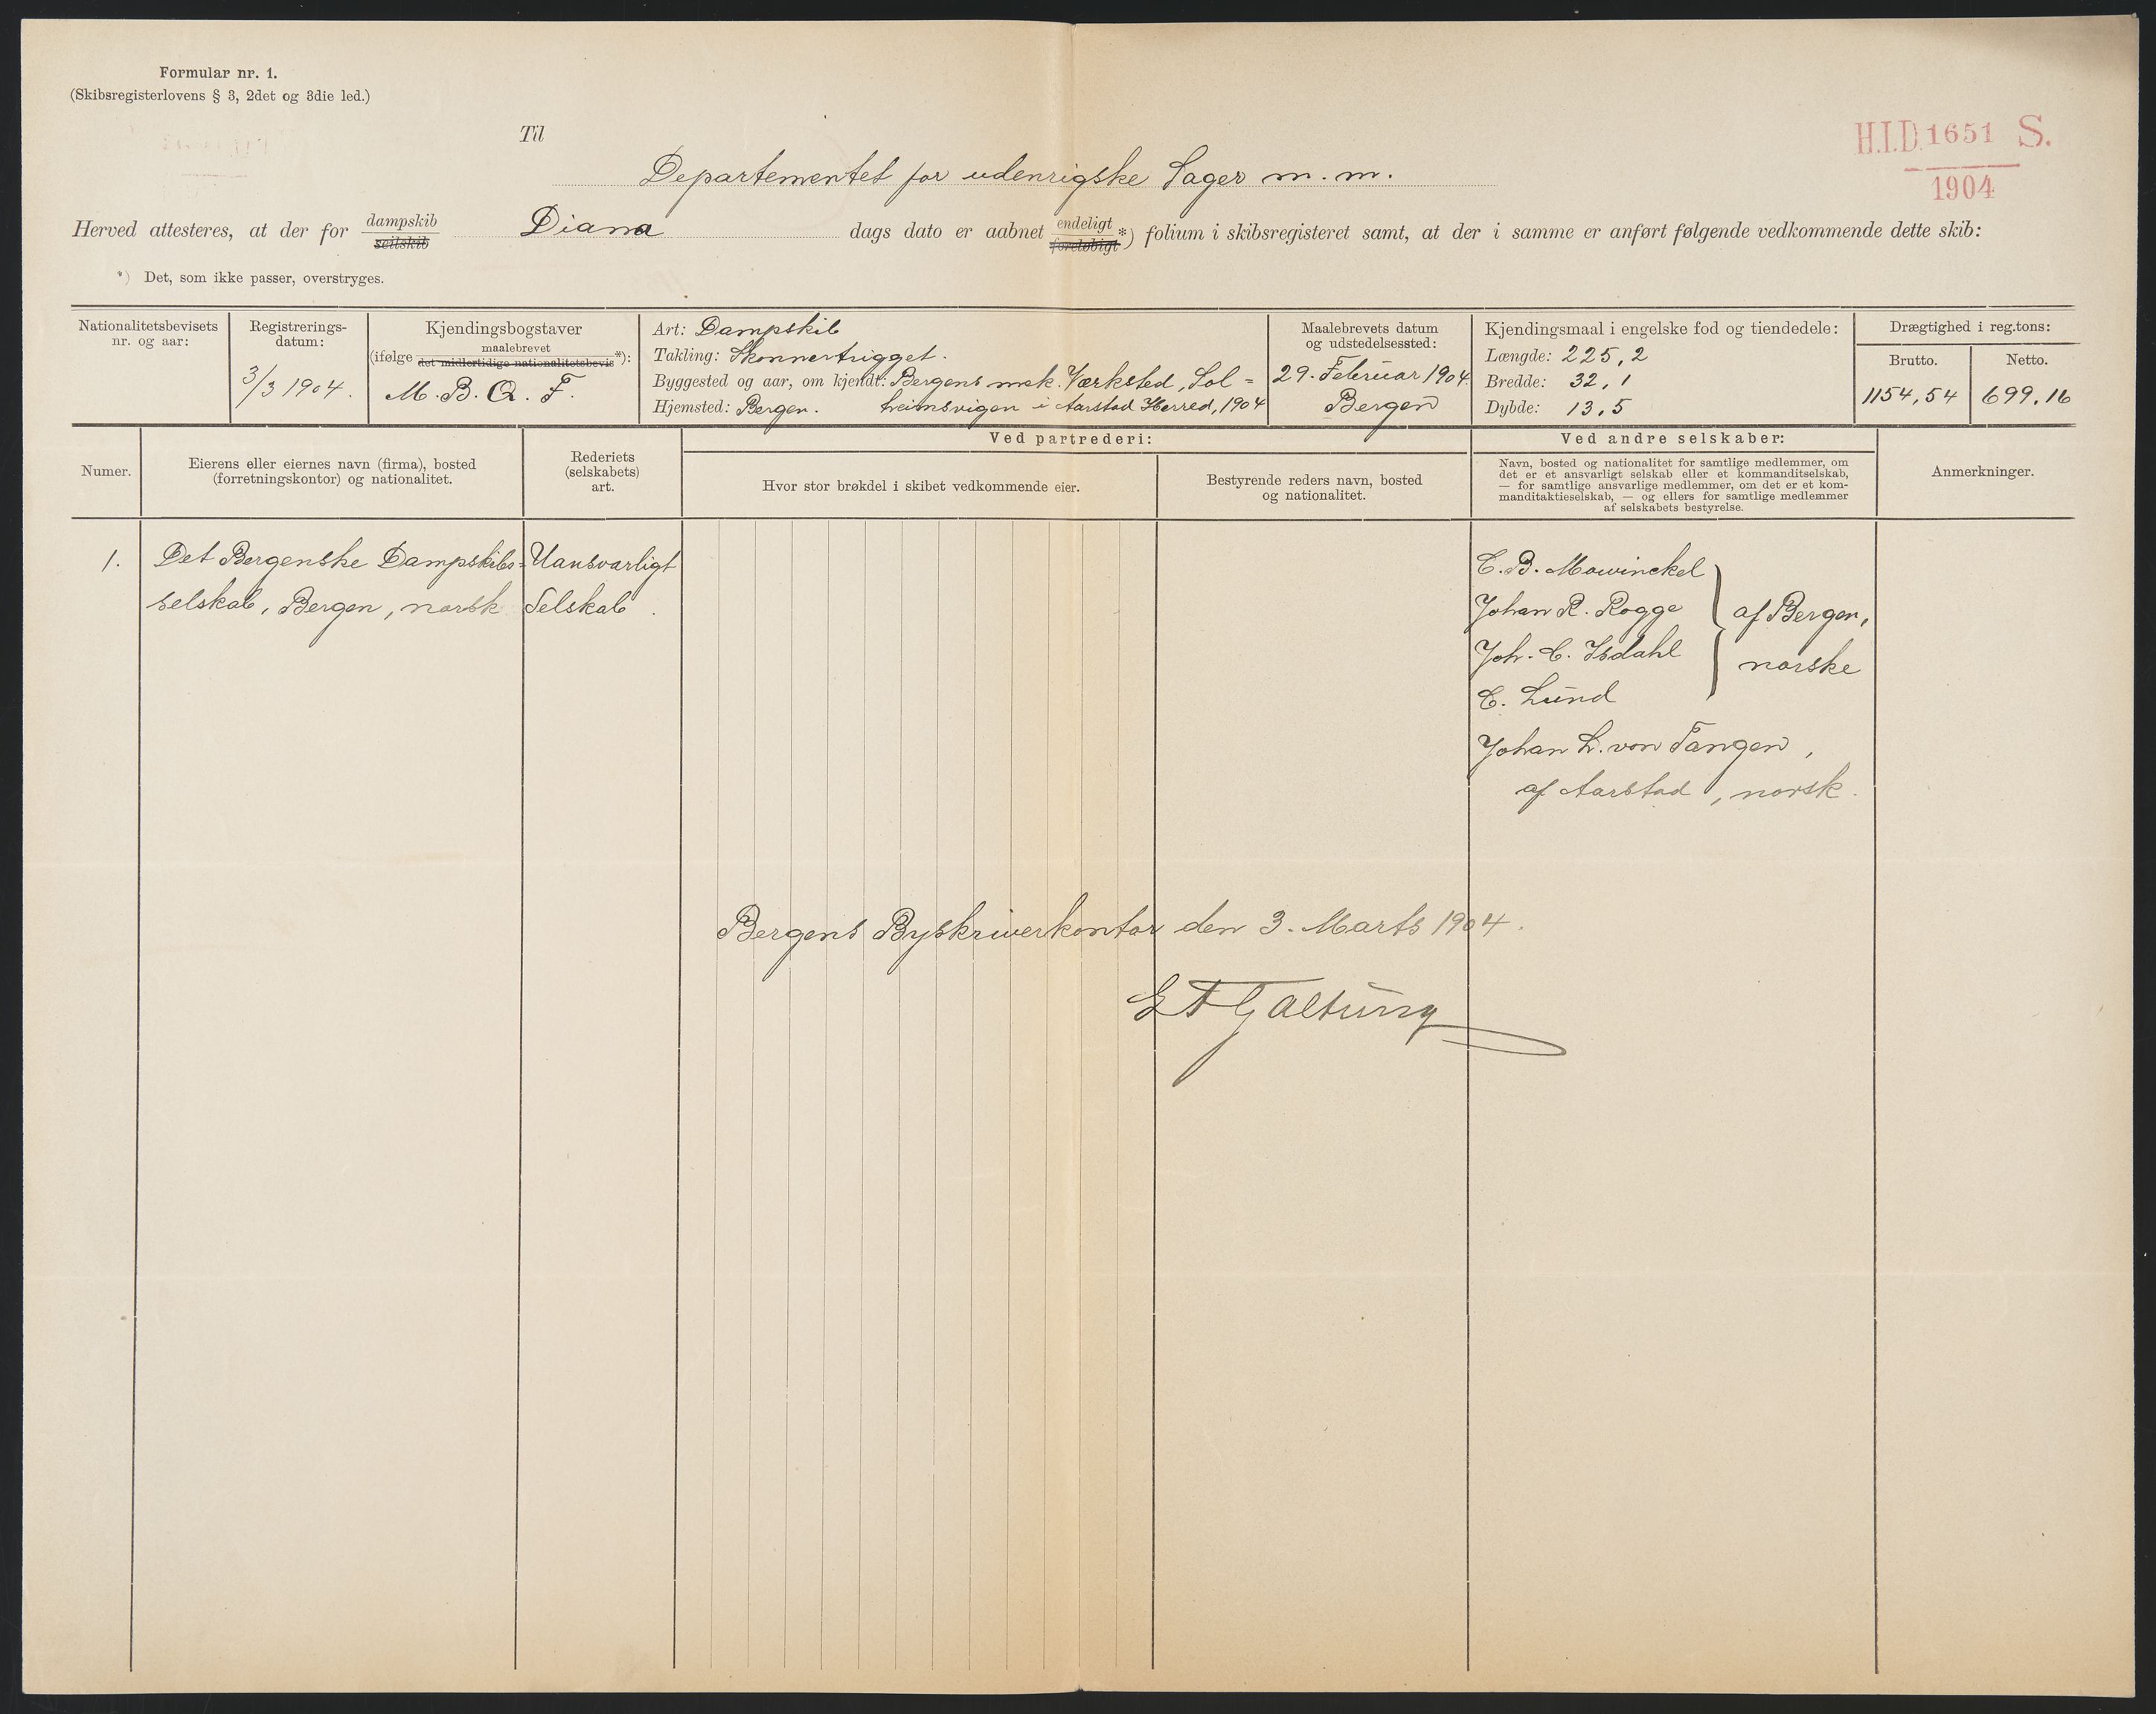 Formular nr. 1.
(Skibsregisterlovens § 3, 2det og 3die led.)
H.I.D. 1651 S.
1904
Til
Departementet for udenrigske Sager m. m.
Herved attesteres, at der for dampskib seilskib Diana dags dato er aabnet endeligt foreløbigt *) folium i skibsregisteret samt, at der i samme er anført følgende vedkommende dette skib:
*) Det, som ikke passer, overstryges.
Nationalitetsbevisets
nr. og aar:
Registrerings-
datum:
3/3 1904.
Kjendingsbogstaver
(ifølge maalebrevet det midlertidige nationalitetsbevis *):
M. B. Q. F.
Art: Dampskib
Takling: Skonnertrigget.
Byggested og aar, om kjendt: Bergens mek. Værksted, Sol=
heimsvigen i Aarstad Herred, 1904
Hjemsted: Bergen.
Maalebrevets datum
og udstedelsessted:
29. Februar 1904.
Bergen
Kjendingsmaal i engelske fod og tiendedele:
Længde: 225,2
Bredde: 32,1
Dybde: 13,5
Drægtighed i reg.tons:
Brutto. Netto.
1154,54 699.16
Numer.
Eierens eller eiernes navn (firma), bosted
(forretningskontor) og nationalitet.
Rederiets
(selskabets)
art.
Ved partrederi:
Hvor stor brøkdel i skibet vedkommende eier.
Bestyrende reders navn, bosted
og nationalitet.
Ved andre selskaber:
Navn, bosted og nationalitet for samtlige medlemmer, om
det er et ansvarligt selskab eller et kommanditselskab,
— for samtlige ansvarlige medlemmer, om det er et kom-
manditaktieselskab, — og ellers for samtlige medlemmer
af selskabets bestyrelse.
Anmerkninger.
1. Det Bergenske Dampskibs=
selskab, Bergen, norsk
Uansvarligt
Selskab.
C. B. Mowinckel
Johan R. Rogge
Joh. C. Isdahl
C. Lund
af Bergen,
norske
Johan L. von Tangen,
af Aarstad, norsk.
Bergens Byskriverkontor den 3. Marts 1904.
Galtung